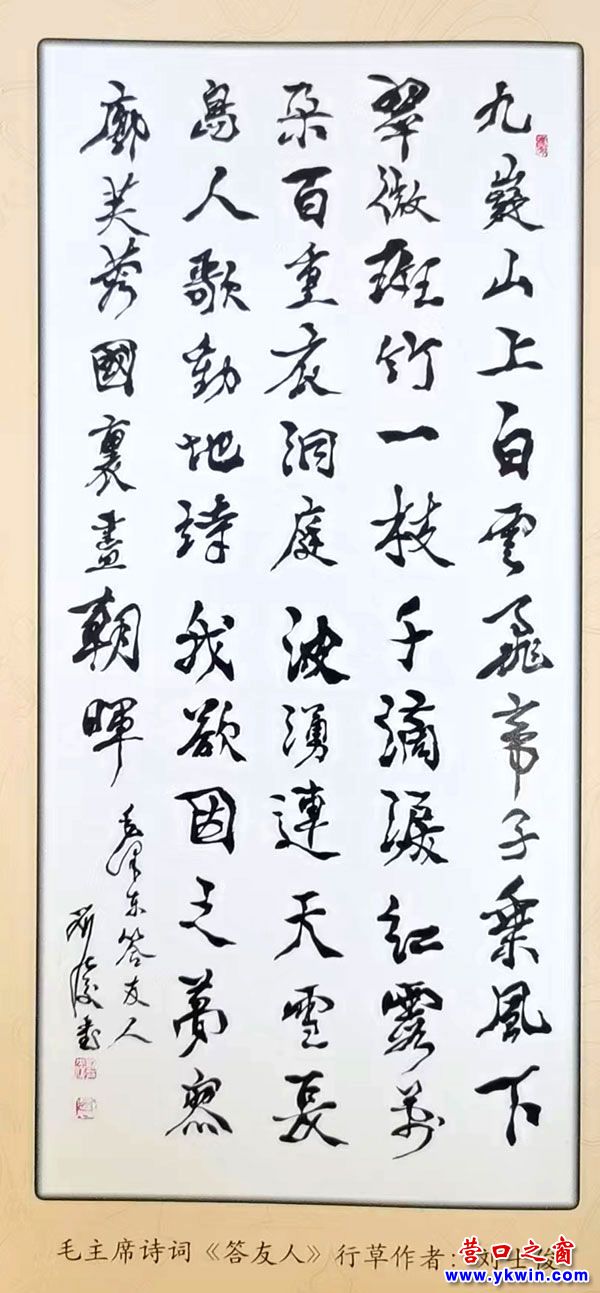 九嶷山上白雲飛帝子乘風下
翠微斑竹一枝千滴淚紅霞萬
朵百重衣洞庭波湧連天雪長
島人歌動地詩我欲因之夢寥
廓芙蓉國裏盡朝暉
毛澤東答友人
毛主席诗词《答友人》行草作者：刘士俊
营口之窗
www.ykwin.com